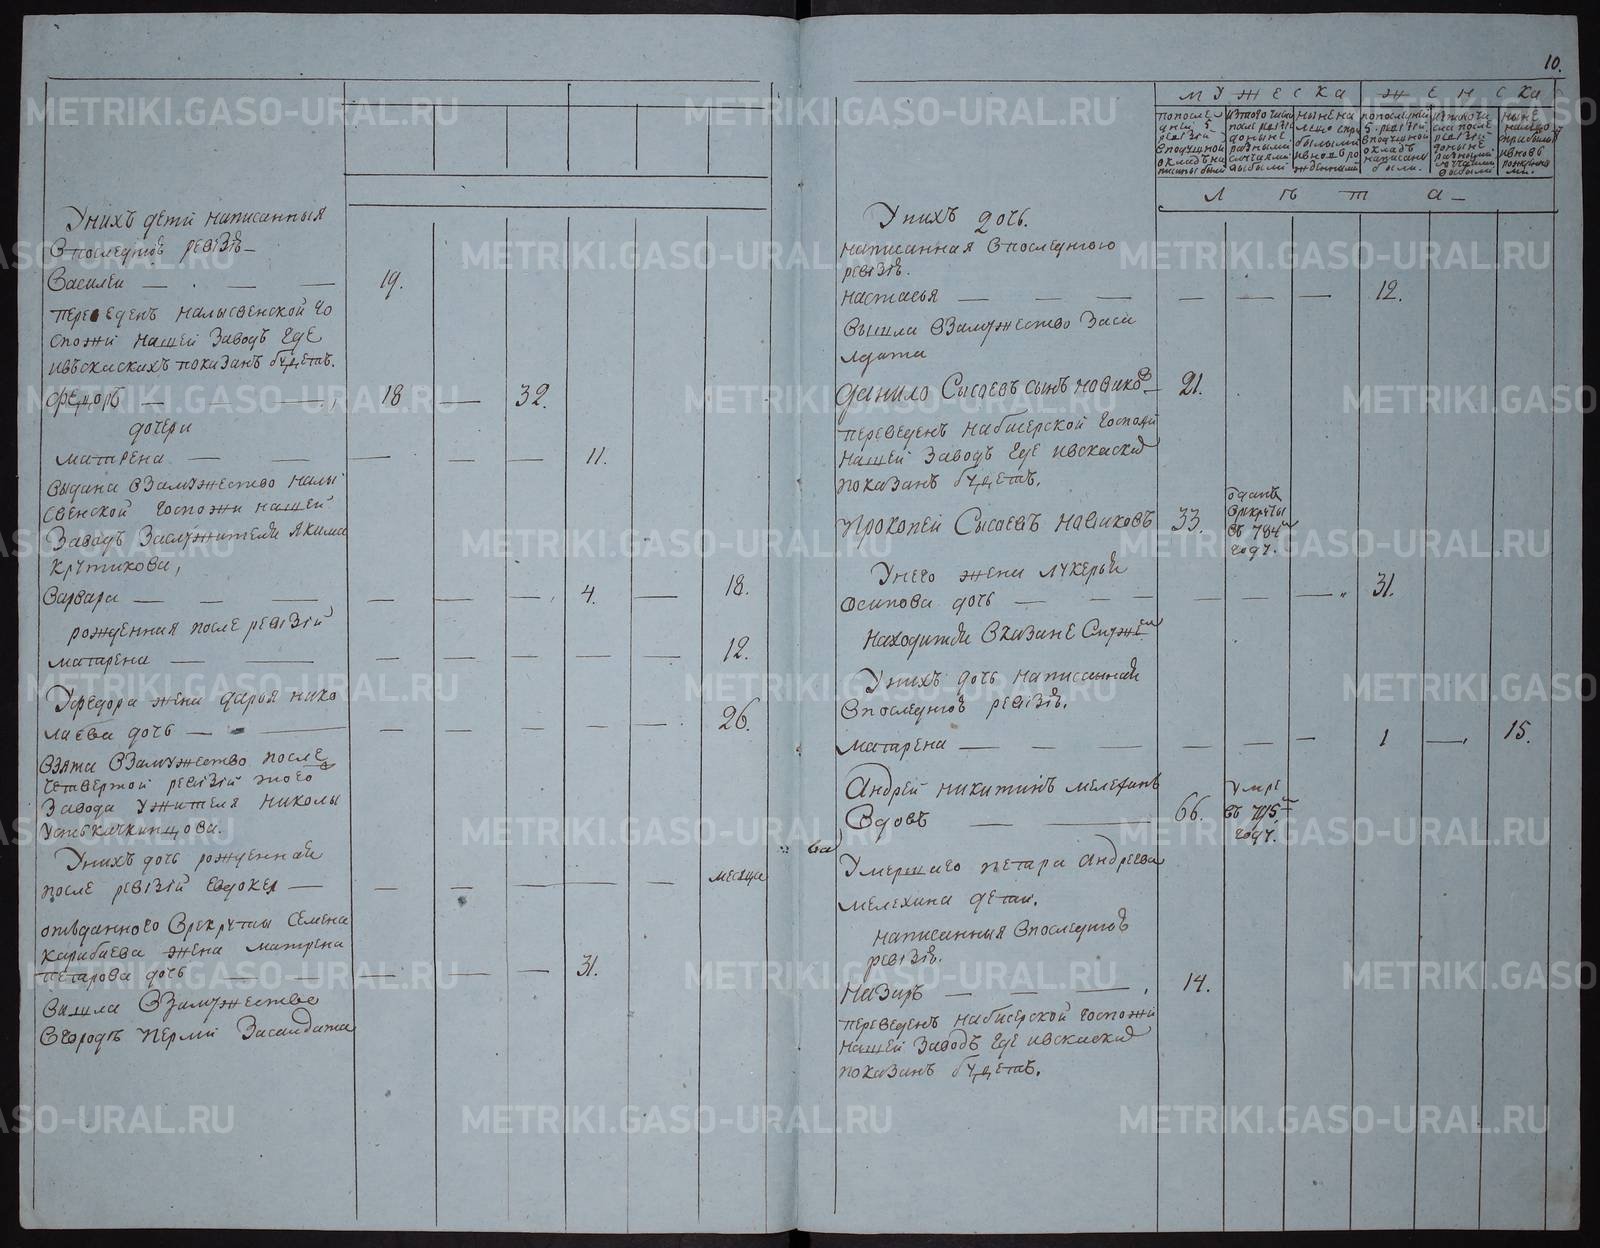 У нихъ дети написанныя
в последнѣй ревизiѣ
Василеи — — — 19.
переведенъ на лысвенской го
спожи нашей заводъ где
ивъ скаскихъ показанъ будетъ.
Федоръ — — 18 — 32.
дочери
матрена — — — — — 11.
выдана в замужество на лы
свенской госпожи нашей
заводъ за служителя якима
крутикова,
варвара — — — — — — 4. — 18.
рожденная после ревизiи
матарена — — — — — — — — 12.
У федора жена дарья нико
лаева дочь — — — — — — — 26.
взята в замужество после
четвертой ревизiй этого
завода у жителя николы
усть качкинцова.
У нихъ дочь рожденная
после ревизiй евдокея — — — — — месяца
отъданного в рекруты семена
карабаева жена матрена
петарова дочь — — — — 31.
вышла в замужество
в городъ перми за салдата
10.
мужеска женска
по после
дней 5
ревизiй
в подушной
окладъ на
писаны были
ис того числа
после ревизiи
до ныне
разными
случаями
выбыли
ныне на
лицо при
былыми
и вновь ро
жденными
по последней
5 ревизiй
в подушной
окладъ
написаны
были.
ис того чи
сла после
ревизiй
до ныне
разными
случаями
выбыли
ныне
налицо
прибылыя
и вновь
рожденны
ми.
лѣта
У нихъ дочь.
написанная в последнюю
ревизiѣ.
настасья — — — — — — 12.
вышла в замужество за са
лдата
Данило Сысаевъ сынъ новиковъ — 21.
переведенъ на бисерской госпожи
нашей заводъ где ив скаскѣ
показанъ будетъ.
Прокопей Сысаевъ новиковъ 33.
отданъ
в рекруты
въ 794м
году.
У него жена лукерья
осипова дочь — — — — — — 31.
находитца в казане с мужем
У нихъ дочь написанная
в последнѣй ревизiѣ.
матарена — — — — — — 1 — 15.
Андрей никитинъ мелехинъ
вдовъ — — 66.
умре
въ 795м
году.
ва
Умершаго петара андреева
мелехина дети.
написанныя в последнѣй
ревизiѣ.
назаръ — — — 14.
переведенъ на бисерской госпожи
нашей заводъ где ив скаскѣ
показанъ будетъ.
METRIKI.GASO-URAL.RU